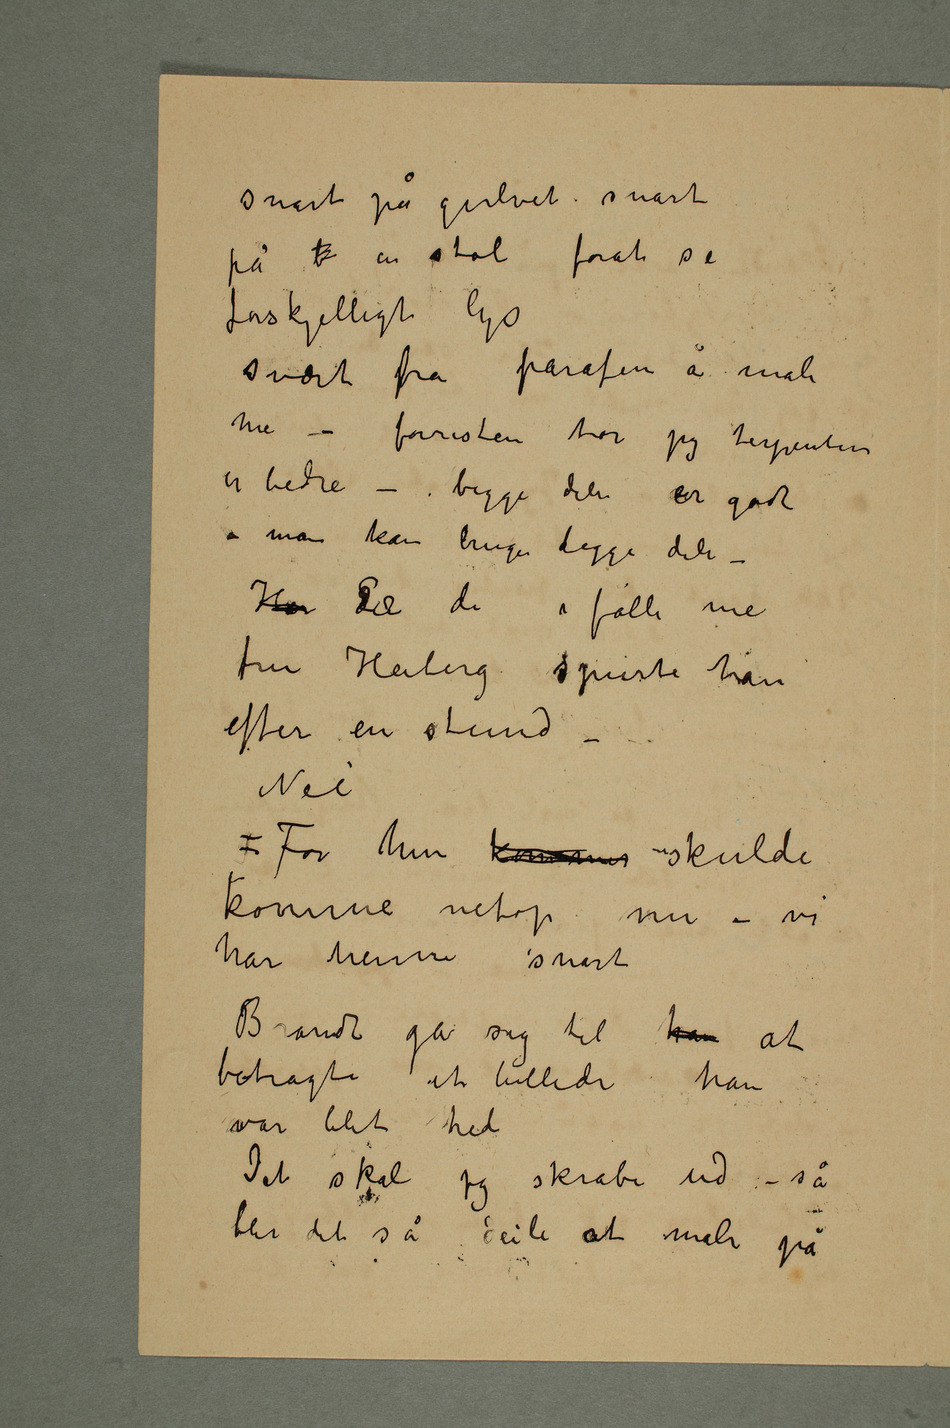 snart på gulvet snart
på en stol forat se
forskjelligt lys
svært bra parafin å male
me – forresten tror jeg terpentin
er bedre – begge dele er godt
– man kan bruge begge dele –
Har Gik de i følle me
fru Heiberg spurte han
efter en stund –
Nei
F For hun kommer skulde
komme netop nu – vi
har henne snart
Brandt ga sig til han at
betragte et billede han
var blet hed
Det skal jeg skrabe ud – så
blir det så deili at male på